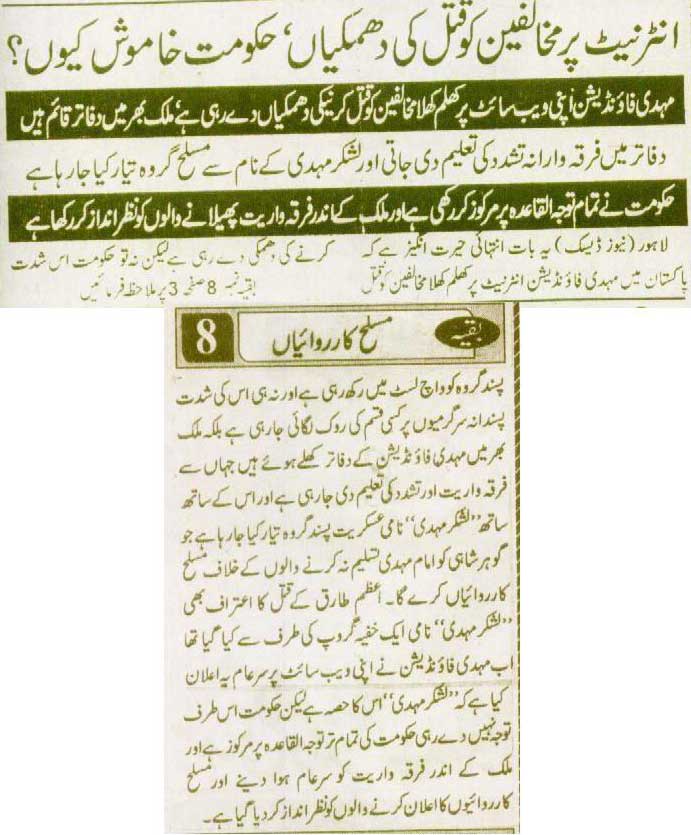 انٹرنیٹ پر مخالفین کو قتل کی دھمکیاں، حکومت خاموش کیوں؟
مہدی فاؤنڈیشن اپنی ویب سائٹ پر کھلم کھلا مخالفین کو قتل کرنیکی دھمکیاں دے رہی ہے، ملک بھر میں دفاتر قائم ہیں
دفاتر میں فرقہ وارانہ تشدد کی تعلیم دی جاتی اور لشکر مہدی کے نام سے مسلح گروہ تیار کیا جا رہا ہے
حکومت نے تمام توجہ القاعدہ پر مرکوز کر رکھی ہے اور ملک کے اندر فرقہ واریت پھیلانے والوں کو نظر انداز کر رکھا ہے
لاہور (نیوز ڈیسک) یہ بات انتہائی حیرت انگیز ہے کہ
پاکستان میں مہدی فاؤنڈیشن انٹرنیٹ پر کھلم کھلا مخالفین کو قتل
کرنے کی دھمکی دے رہی ہے لیکن نہ تو حکومت اس شدت
بقیہ نمبر 8 صفحہ 3 پر ملاحظہ فرمائیں
بقیہ مسلح کارروائیاں 8
پسند گروہ کو واچ لسٹ میں رکھ رہی ہے اور نہ ہی اس کی شدت
پسندانہ سرگرمیوں پر کسی قسم کی روک لگائی جا رہی ہے بلکہ ملک
بھر میں مہدی فاؤنڈیشن کے دفاتر کھلے ہوئے ہیں جہاں سے
فرقہ واریت اور تشدد کی تعلیم دی جا رہی ہے اور اس کے ساتھ
ساتھ ’’لشکر مہدی‘‘ نامی عسکریت پسند گروہ تیار کیا جا رہا ہے جو
گوہر شاہی کو امام مہدی تسلیم نہ کرنے والوں کے خلاف مسلح
کارروائیاں کرے گا۔ اعظم طارق کے قتل کا اعتراف بھی
’’لشکر مہدی‘‘ نامی ایک خفیہ گروپ کی طرف سے کیا گیا تھا
اب مہدی فاؤنڈیشن نے اپنی ویب سائٹ پر سرعام یہ اعلان
کیا ہے کہ ’’لشکر مہدی‘‘ اس کا حصہ ہے لیکن حکومت اس طرف
توجہ نہیں دے رہی حکومت کی تمام تر توجہ القاعدہ پر مرکوز ہے اور
ملک کے اندر فرقہ واریت کو سرعام ہوا دینے اور مسلح
کارروائیوں کا اعلان کرنے والوں کو نظر انداز کر دیا گیا ہے۔